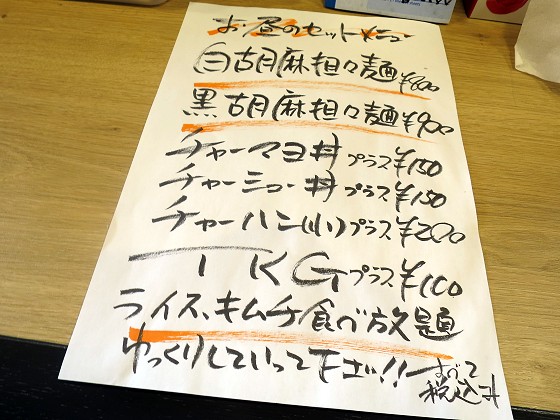 お昼のセットメニュー
白胡麻担々麺¥800
黒胡麻担々麺¥900
チャーマヨ丼プラス¥150
チャーシュー丼プラス¥150
チャーハン(小)プラス¥200
TKGプラス¥100
ライス、キムチ食べ放題
ゆっくりしていって下さいッ!!
すべて
税込み